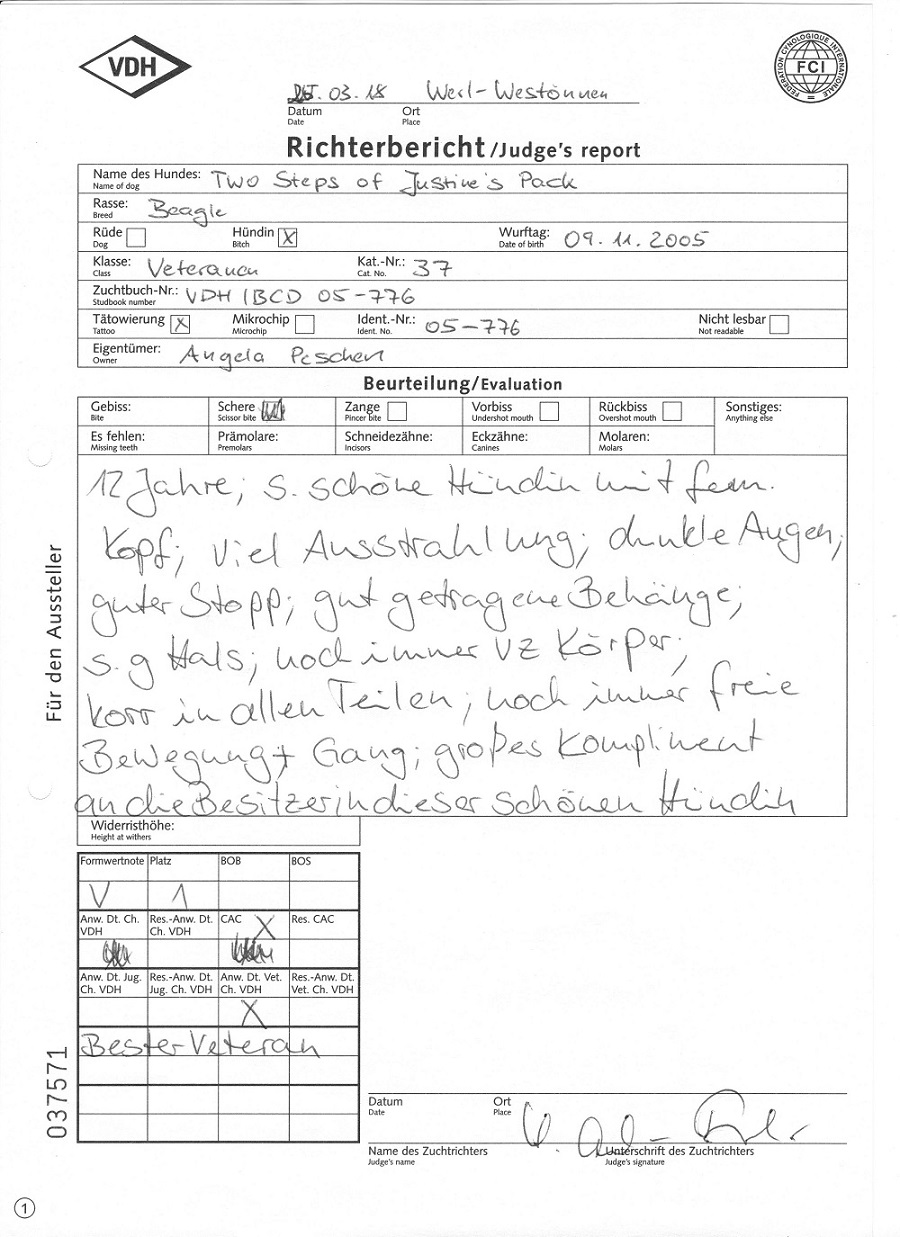 VDH
FEDERATION CYNOLOGIQUE INTERNATIONALE
FCI
.03.18 Werl-Westönnen
Datum Ort
Date Place
Richterbericht /Judge's report
Name des Hundes: Two Steps of Justine's Pack
Name of dog
Rasse: Beagle
Breed
Rüde Hündin X Wurftag: 09.11.2005
Dog Bitch Date of birth
Klasse: Veteranen Kat.-Nr.: 37
Class Cat. No.
Zuchtbuch-Nr.: VDH/BCD 05-776
Studbook number
Tätowierung X Mikrochip Ident.-Nr.: 05-776 Nicht lesbar
Tattoo Microchip Ident. No. Not readable
Eigentümer: Angela
Owner
Beurteilung/Evaluation
Gebiss: Schere Zange Vorbiss Rückbiss Sonstiges:
Bite Scissor bite Pincer bite Undershot mouth Overshot mouth Anything else
Es fehlen: Prämolare: Schneidezähne: Eckzähne: Molaren:
Missing teeth Premolars Incisors Canines Molars
12 Jahre; s. schöne Hündin mit fem.
Kopf; viel Ausstrahlung; dunkle Augen;
guter Stopp; gut getragene Behänge;
s. g Hals; noch immer vz Körper;
korr in allen Teilen; noch immer freie
Bewegung + Gang; großes Kompliment
an die Besitzerin dieser schönen Hündin
Für den Aussteller
Widerristhöhe:
Height at withers
Formwertnote Platz BOB BOS
V 1
Anw. Dt. Ch. Res.-Anw. Dt. CAC X Res. CAC
VDH Ch. VDH
Anw. Dt. Jug. Res.-Anw. Dt. Anw. Dt. Vet. Res.-Anw. Dt.
Ch. VDH Jug. Ch. VDH Ch. VDH Vet. Ch. VDH
X
Bester Veteran
037571
Datum Ort
Date Place
Name des Zuchtrichters Unterschrift des Zuchtrichters
Judge's name Judge's signature
1